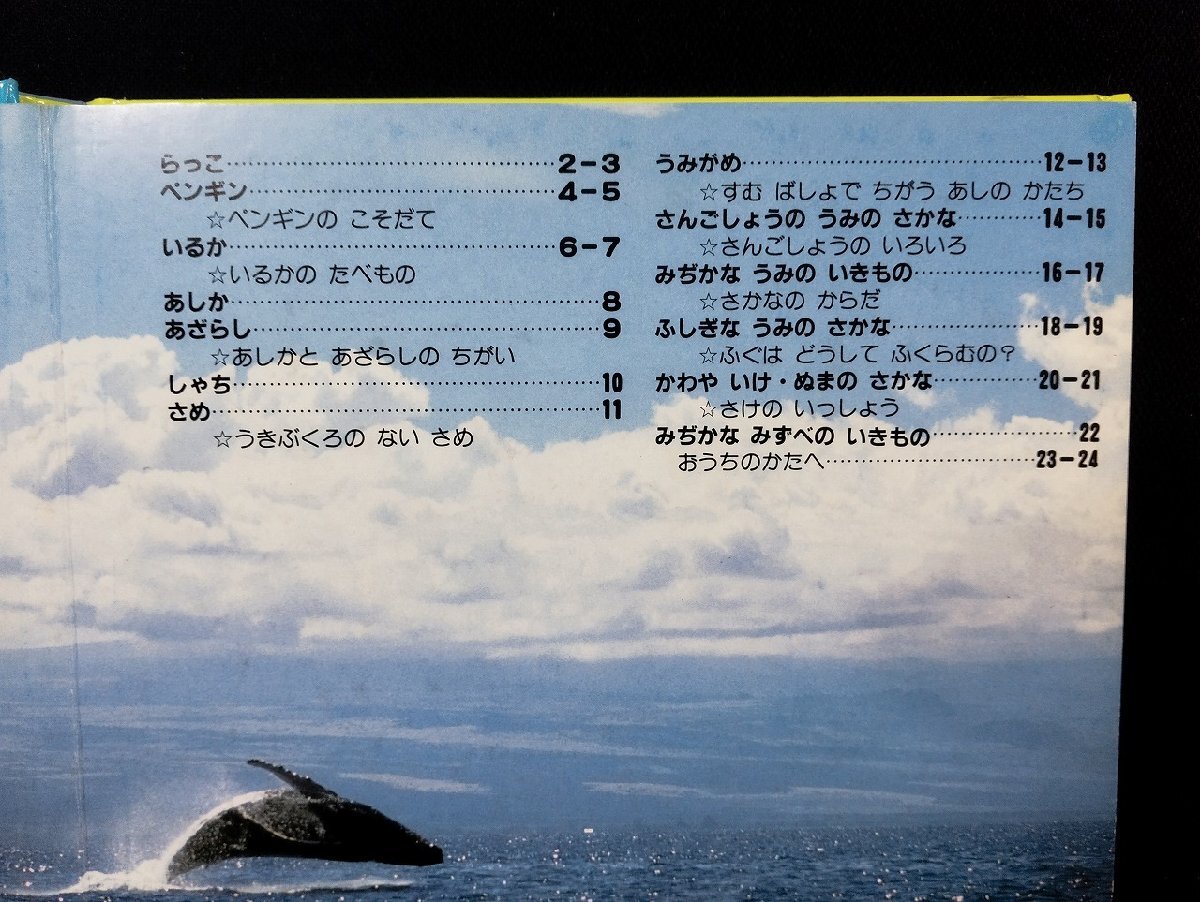 らっこ……………………………2－3
ペンギン…………………………4－5
☆ペンギンの こそだて
いるか……………………………6－7
☆いるかの たべもの
あしか……………………………8
あざらし…………………………9
☆あしかと あざらしの ちがい
しゃち……………………………10
さめ………………………………11
☆うきぶくろの ない さめ
うみがめ…………………………12－13
☆すむ ばしょで ちがう あしの かたち
さんごしょうの うみの さかな………14－15
☆さんごしょうの いろいろ
みぢかな うみの いきもの…………16－17
☆さかなの からだ
ふしぎな うみの さかな……………18－19
☆ふぐは どうして ふくらむの？
かわや いけ・ぬまの さかな…………20－21
☆さけの いっしょう
みぢかな みずべの いきもの…………22
おうちのかたへ……………………23－24